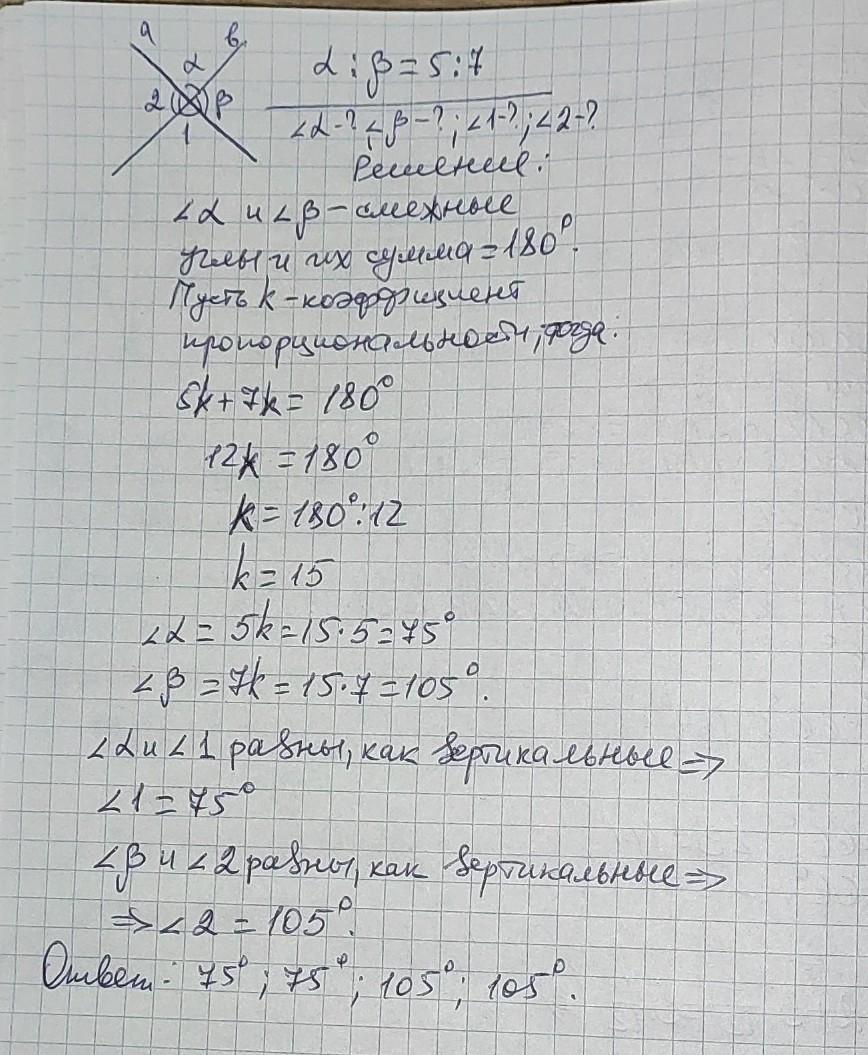 a b
α
2 β
1
α : β = 5 : 7
∠α-? ∠β-?; ∠1-?; ∠2-?
Решение:
∠α и ∠β - смежные
углы и их сумма = 180°.
Пусть k - коэффициент
пропорциональности, тогда:
5k + 7k = 180°
12k = 180°
k = 180° : 12
k = 15
∠α = 5k = 15·5 = 75°
∠β = 7k = 15·7 = 105°.
∠α и ∠1 равны, как вертикальные ⇒
∠1 = 75°
∠β и ∠2 равны, как вертикальные ⇒
⇒ ∠2 = 105°.
Ответ: 75°; 75°; 105°; 105°.